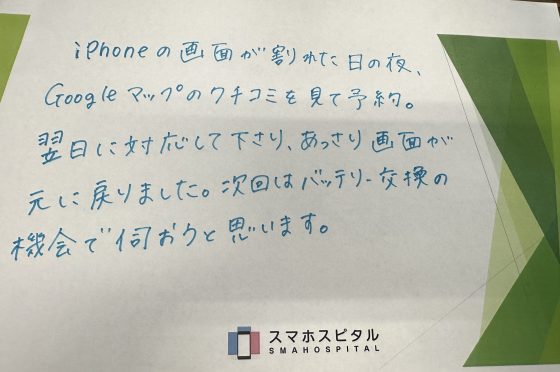 iPhoneの画面が割れた日の夜、
Googleマップのクチコミを見て予約。
翌日に対応して下さり、あっさり画面が
元に戻りました。次回はバッテリー交換の
機会で伺おうと思います。
スマホスピタル
SMAHOSPITAL